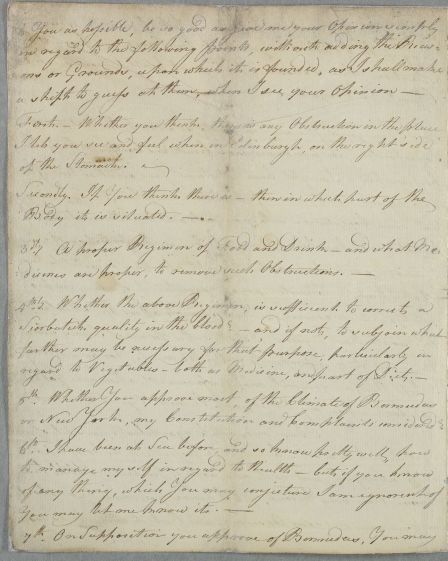 You as possible, be so good as give me your Opinion simply
in regard to the following Points, without adding the Reas-
ons or Grounds, upon which it is founded, as I shall make
a shift to guess at them, when I see your Opinion —
First — Whether you think there is any Obstruction in the place
I let you see and feel when in Edinburgh, on the right side
of the Stomach. —
Secondly. If you think there is — then in which part of the
Body it is situated. —
3dly A proper Regimen of Food and Drink — and what Me-
dicines are proper, to remove such Obstructions. —
4thly Whether the above Regimen, is sufficient to correct a
Scorbutick quality in the blood — and if not, to subjoin what
further may be necessary for that purpose, particularly in
regard to Vegetables — both as Medicine, and part of Diet. —
5th. Whether You approve most of the Climate of Bermudas
or New York, my Constitution and Complaints considered
6th. I have been at Sea before, and so know pretty well, how
to manage myself in regard to Health — but if you know
of any thing, which You may conjecture I am ignorant of
You may let me know it. —
7th. On Supposition you approve of Bermudas, You may